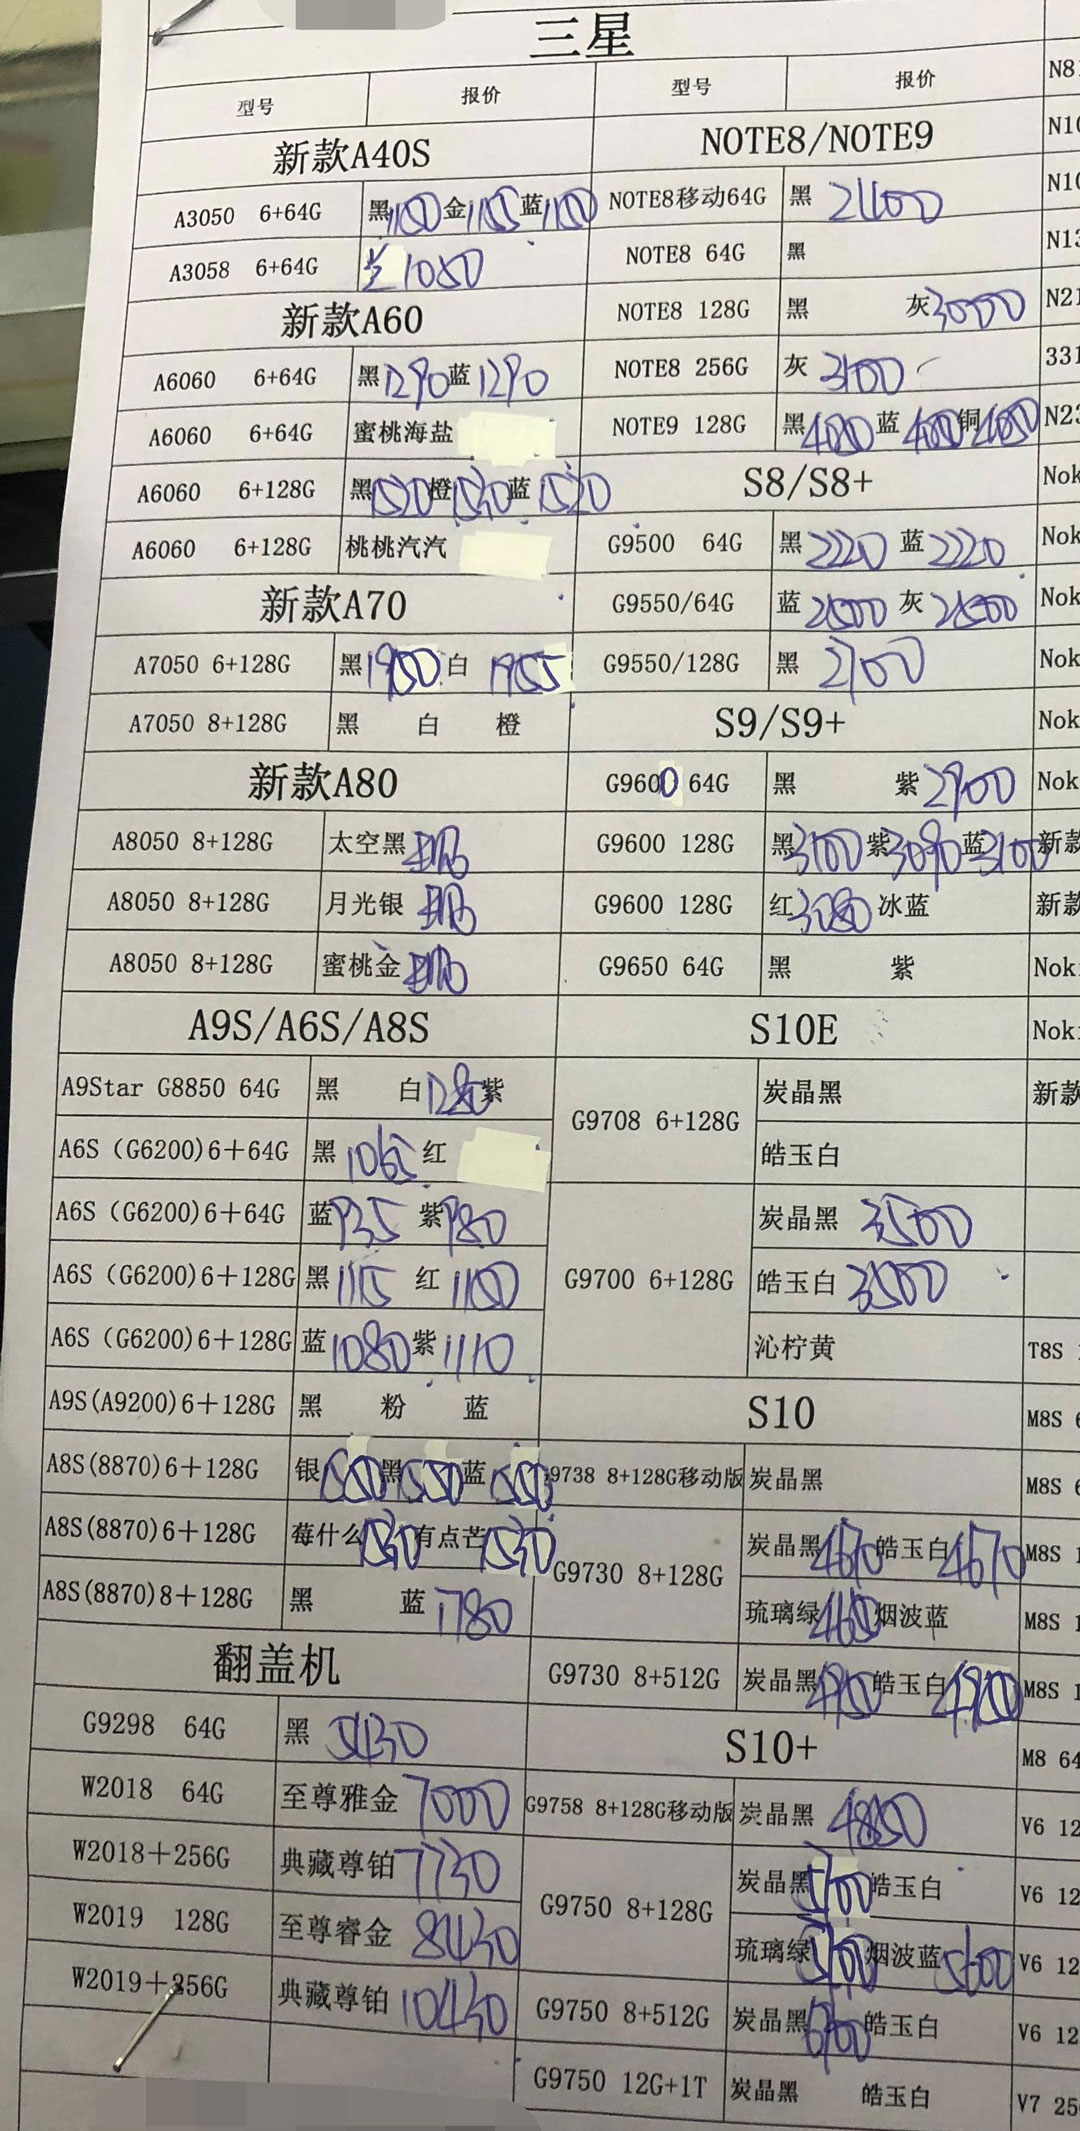 三星
型号 报价 型号 报价
新款A40S
A3050 6+64G 黑1150 金1155 蓝1150
A3058 6+64G 1080
新款A60
A6060 6+64G 黑1290 蓝1290
A6060 6+64G 蜜桃海盐
A6060 6+128G 黑1520 橙1530 蓝1520
A6060 6+128G 桃桃汽汽
新款A70
A7050 6+128G 黑1950 白 1955
A7050 8+128G 黑 白 橙
新款A80
A8050 8+128G 太空黑
A8050 8+128G 月光银
A8050 8+128G 蜜桃金
A9S/A6S/A8S
A9Star G8850 64G 黑 白1280 紫
A6S (G6200)6+64G 黑 1065 红
A6S (G6200)6+64G 蓝935 紫980
A6S (G6200)6+128G 黑1115 红 1150
A6S (G6200)6+128G 蓝1080 紫1110
A9S(A9200)6+128G 黑 粉 蓝
A8S(8870)6+128G 银1550 黑1550 蓝1550
A8S(8870)6+128G 莓什么1530 有点芒1530
A8S(8870)8+128G 黑 蓝1780
翻盖机
G9298 64G 黑 5430
W2018 64G 至尊雅金 7000
W2018+256G 典藏尊铂7730
W2019 128G 至尊睿金 8430
W2019+256G 典藏尊铂 10430
NOTE8/NOTE9
NOTE8移动64G 黑 2100
NOTE8 64G 黑
NOTE8 128G 黑 灰3000
NOTE8 256G 灰 3100
NOTE9 128G 黑 蓝 铜
S8/S8+
G9500 64G 黑2220 蓝2220
G9550/64G 蓝2500 灰2500
G9550/128G 黑 2700
S9/S9+
G9600 64G 黑 紫2900
G9600 128G 黑3100 紫3090 蓝3100
G9600 128G 红3080 冰蓝
G9650 64G 黑 紫
S10E
G9708 6+128G 炭晶黑
皓玉白
G9700 6+128G 炭晶黑 3500
皓玉白 3500
沁柠黄
S10
9738 8+128G移动版 炭晶黑
G9730 8+128G 炭晶黑4670 皓玉白4670
琉璃绿4650 烟波蓝
G9730 8+512G 炭晶黑4900 皓玉白4900
S10+
G9758 8+128G移动版 炭晶黑 4850
G9750 8+128G 炭晶黑 皓玉白
琉璃绿 烟波蓝5600
G9750 8+512G 炭晶黑 皓玉白
G9750 12G+1T 炭晶黑 皓玉白
N10
N10
N13
N21
331
N23
Nok
Nok
Nok
Nok
Nok
Nok
新款
新款
Nok
Nok
新款
T8S
M8S 6
M8S 6
M8S 1
M8S 1
M8S 1
M8 64
V6 12
V6 12
V6 12
V6 12
V7 25